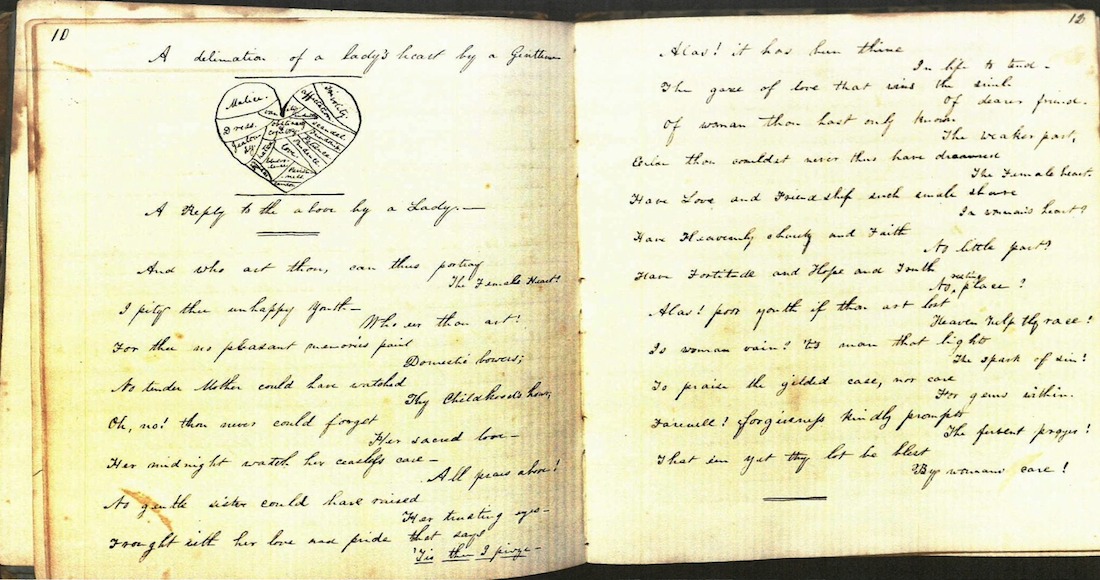 10
A deliniation of a lady's heart by a Gentleman
Malice.
Frivolity
affectation
vanity
Dress.
scandal.
obstinacy
envy
love
A Reply to the above by a Lady.—
And who art thou, can thus portray
The Female Heart?
I pity thee unhappy Youth—
Who eer thou art!
For thee no pleasant memories paint
Domestic bowers;
No tender Mother could have watched
Thy Childhood's hours;
Oh, no! thou never could forget
Her sacred love—
Her midnight watch her ceasless care—
All praise above!
No gentle sister could have raised
Her trusting eyes—
Frought with her love and pride that says
'Tis thee I prize—
12
Alas! it has been thine
In life to tend—
The gaze of love that wins the smile
Of dearer friend.
Of woman thou hast only known
The weaker part,
thou couldst never thus have dreamed
The Female heart.
Have Love and Friendship such small share
In woman's heart?
Have Heavenly charity and Faith
No little part?
Have Fortitude and Hope and Truth
No resting place?
Alas! poor youth if thou art lost
Heaven help thy race!
Is woman vain? 'tis man that lights
The spark of sin!
To praise the gilded case, nor care
For gems within.
Farewell! forgiveness kindly prompts
The fervent prayer!
That een yet thy lot be blest
By womans care!